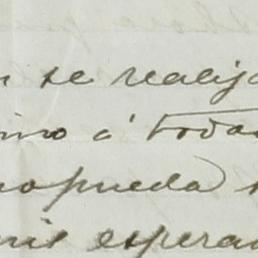 n se realiza
ino á todas
no pueda s
mis esperan